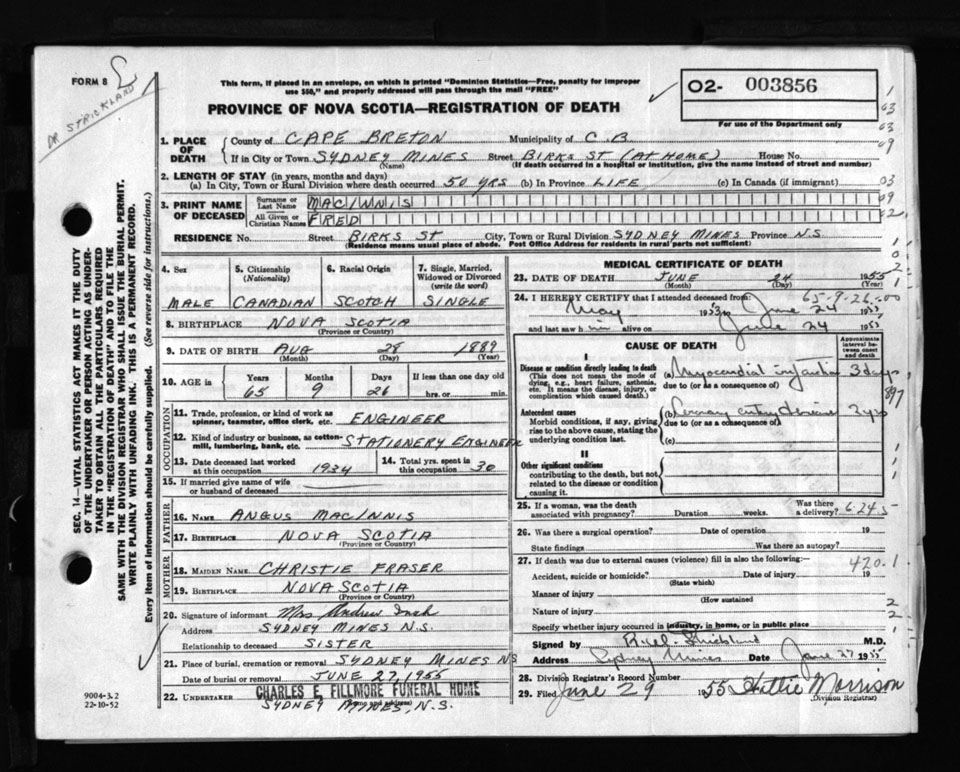 FORM 8
DR STRICKLAND
This form, if placed in an envelope, on which is printed "Dominion Statistics—Free, penalty for improper
use $50," and properly addressed will pass through the mail "FREE"
PROVINCE OF NOVA SCOTIA—REGISTRATION OF DEATH
02- 003856
For use of the Department only
SEC. 14—VITAL STATISTICS ACT MAKES IT THE DUTY
OF THE UNDERTAKER OR PERSON ACTING AS UNDER-
TAKER TO OBTAIN ALL THE PARTICULARS REQUIRED
IN THE "REGISTRATION OF DEATH" AND TO FILE THE
SAME WITH THE DIVISION REGISTRAR WHO SHALL ISSUE THE BURIAL PERMIT.
WRITE PLAINLY WITH UNFADING INK. THIS IS A PERMANENT RECORD.
Every item of information should be carefully supplied. (See reverse side for instructions.)
1. PLACE OF DEATH
County of CAPE BRETON Municipality of C.B.
If in City or Town SYDNEY MINES Street BIRKS ST (AT HOME) House No.
(Name) (If death occurred in a hospital or institution, give the name instead of street and number)
2. LENGTH OF STAY (in years, months and days)
(a) In City, Town or Rural Division where death occurred 50 YRS (b) In Province LIFE (c) In Canada (if immigrant)
3. PRINT NAME OF DECEASED
Surname or Last Name MACINNIS
All Given or Christian Names FRED
RESIDENCE No. Street BIRKS ST City, Town or Rural Division SYDNEY MINES Province N.S.
(Residence means usual place of abode. Post Office Address for residents in rural parts not sufficient)
4. Sex 5. Citizenship (Nationality) 6. Racial Origin 7. Single, Married, Widowed or Divorced (write the word)
MALE CANADIAN SCOTCH SINGLE
8. BIRTHPLACE NOVA SCOTIA
(Province or Country)
9. DATE OF BIRTH AUG 28 1889
(Month) (Day) (Year)
10. AGE in Years Months Days If less than one day old
65 9 26 hrs. or min.
OCCUPATION
11. Trade, profession, or kind of work as
spinner, teamster, office clerk, etc. ENGINEER
12. Kind of industry or business, as cotton-
mill, lumbering, bank, etc. STATIONERY ENGINEER
13. Date deceased last worked
at this occupation 1934
14. Total yrs. spent in
this occupation 30
15. If married give name of wife
or husband of deceased
FATHER
16. NAME ANGUS MACINNIS
17. BIRTHPLACE NOVA SCOTIA
(Province or Country)
MOTHER
18. MAIDEN NAME CHRISTIE FRASER
19. BIRTHPLACE NOVA SCOTIA
(Province or Country)
20. Signature of informant Mrs Andrew
Address SYDNEY MINES N.S.
Relationship to deceased SISTER
21. Place of burial, cremation or removal SYDNEY MINES NS
Date of burial or removal JUNE 27, 1955
22. UNDERTAKER CHARLES E. FILLMORE FUNERAL HOME
(Name and address)
SYDNEY MINES, N.S.
9004-3.2
22-10-52
MEDICAL CERTIFICATE OF DEATH
23. DATE OF DEATH JUNE 24 1955
(Month) (Day)
65-9-26-00
24. I HEREBY CERTIFY that I attended deceased from:
May 1953, to June 24 1955
and last saw him alive on June 24 1955
CAUSE OF DEATH
Approximate interval between onset and death
I
Disease or condition directly leading to death
(This does not mean the mode of
dying, e.g., heart failure, asthenia,
etc. It means the disease, injury, or
complication which caused death.)
(a) Myocardial infarction 3 days
due to (or as a consequence of)
897
Antecedent causes
Morbid conditions, if any, giving
rise to the above cause, stating the
underlying condition last.
(b) Coronary artery disease 2 yrs
due to (or as a consequence of)
(c)
II
Other significant conditions
contributing to the death, but not
related to the disease or condition
causing it.
25. If a woman, was the death
associated with pregnancy? Duration weeks. Was there
a delivery?
6-24-5
26. Was there a surgical operation? Date of operation 19
State findings Was there an autopsy?
27. If death was due to external causes (violence) fill in also the following:—
420.1
Accident, suicide or homicide? Date of injury 19
(State which)
Manner of injury
(How sustained
Nature of injury
Specify whether injury occurred in industry, in home, or in public place
Signed by Strickland M.D.
Address Sydney Mines Date June 27 1955
28. Division Registrar's Record Number
29. Filed June 29 1955 Hattie Morrison
(Division Registrar)